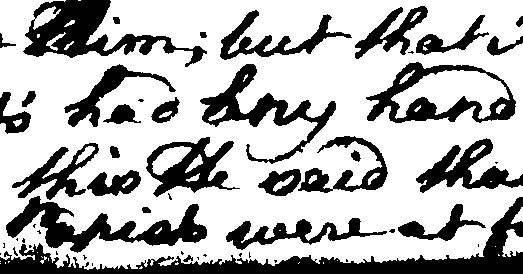 Him; but that i
had any hand
this He said tha
Papists were at f